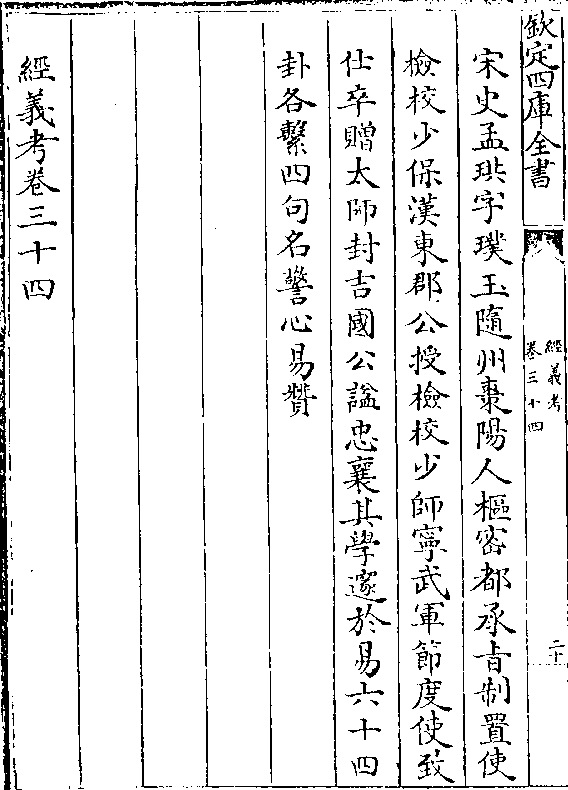 欽定四庫全書
經義考
卷三十四
二十
宋史孟珙字璞玉隨州棗陽人樞密都承㫖制置使
檢校少保漢東郡公授檢校少師寧武軍節度使致
仕卒贈太師封吉國公諡忠襄其學邃於易六十四
卦各繫四句名警心易贊
經義考卷三十四